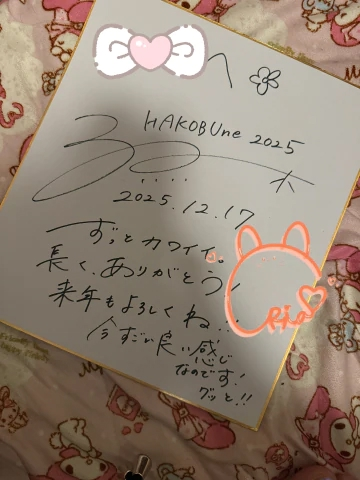 へ
HAKOBUne 2025
2025.12.17
ずっとカワイイ。
長く、ありがとう!
来年もよろしくね…
今すごい良い感じ
なのです!
グッと!!
Rio